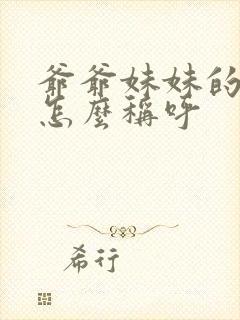 爺爺妹妹的
怎麼稱呼
希行